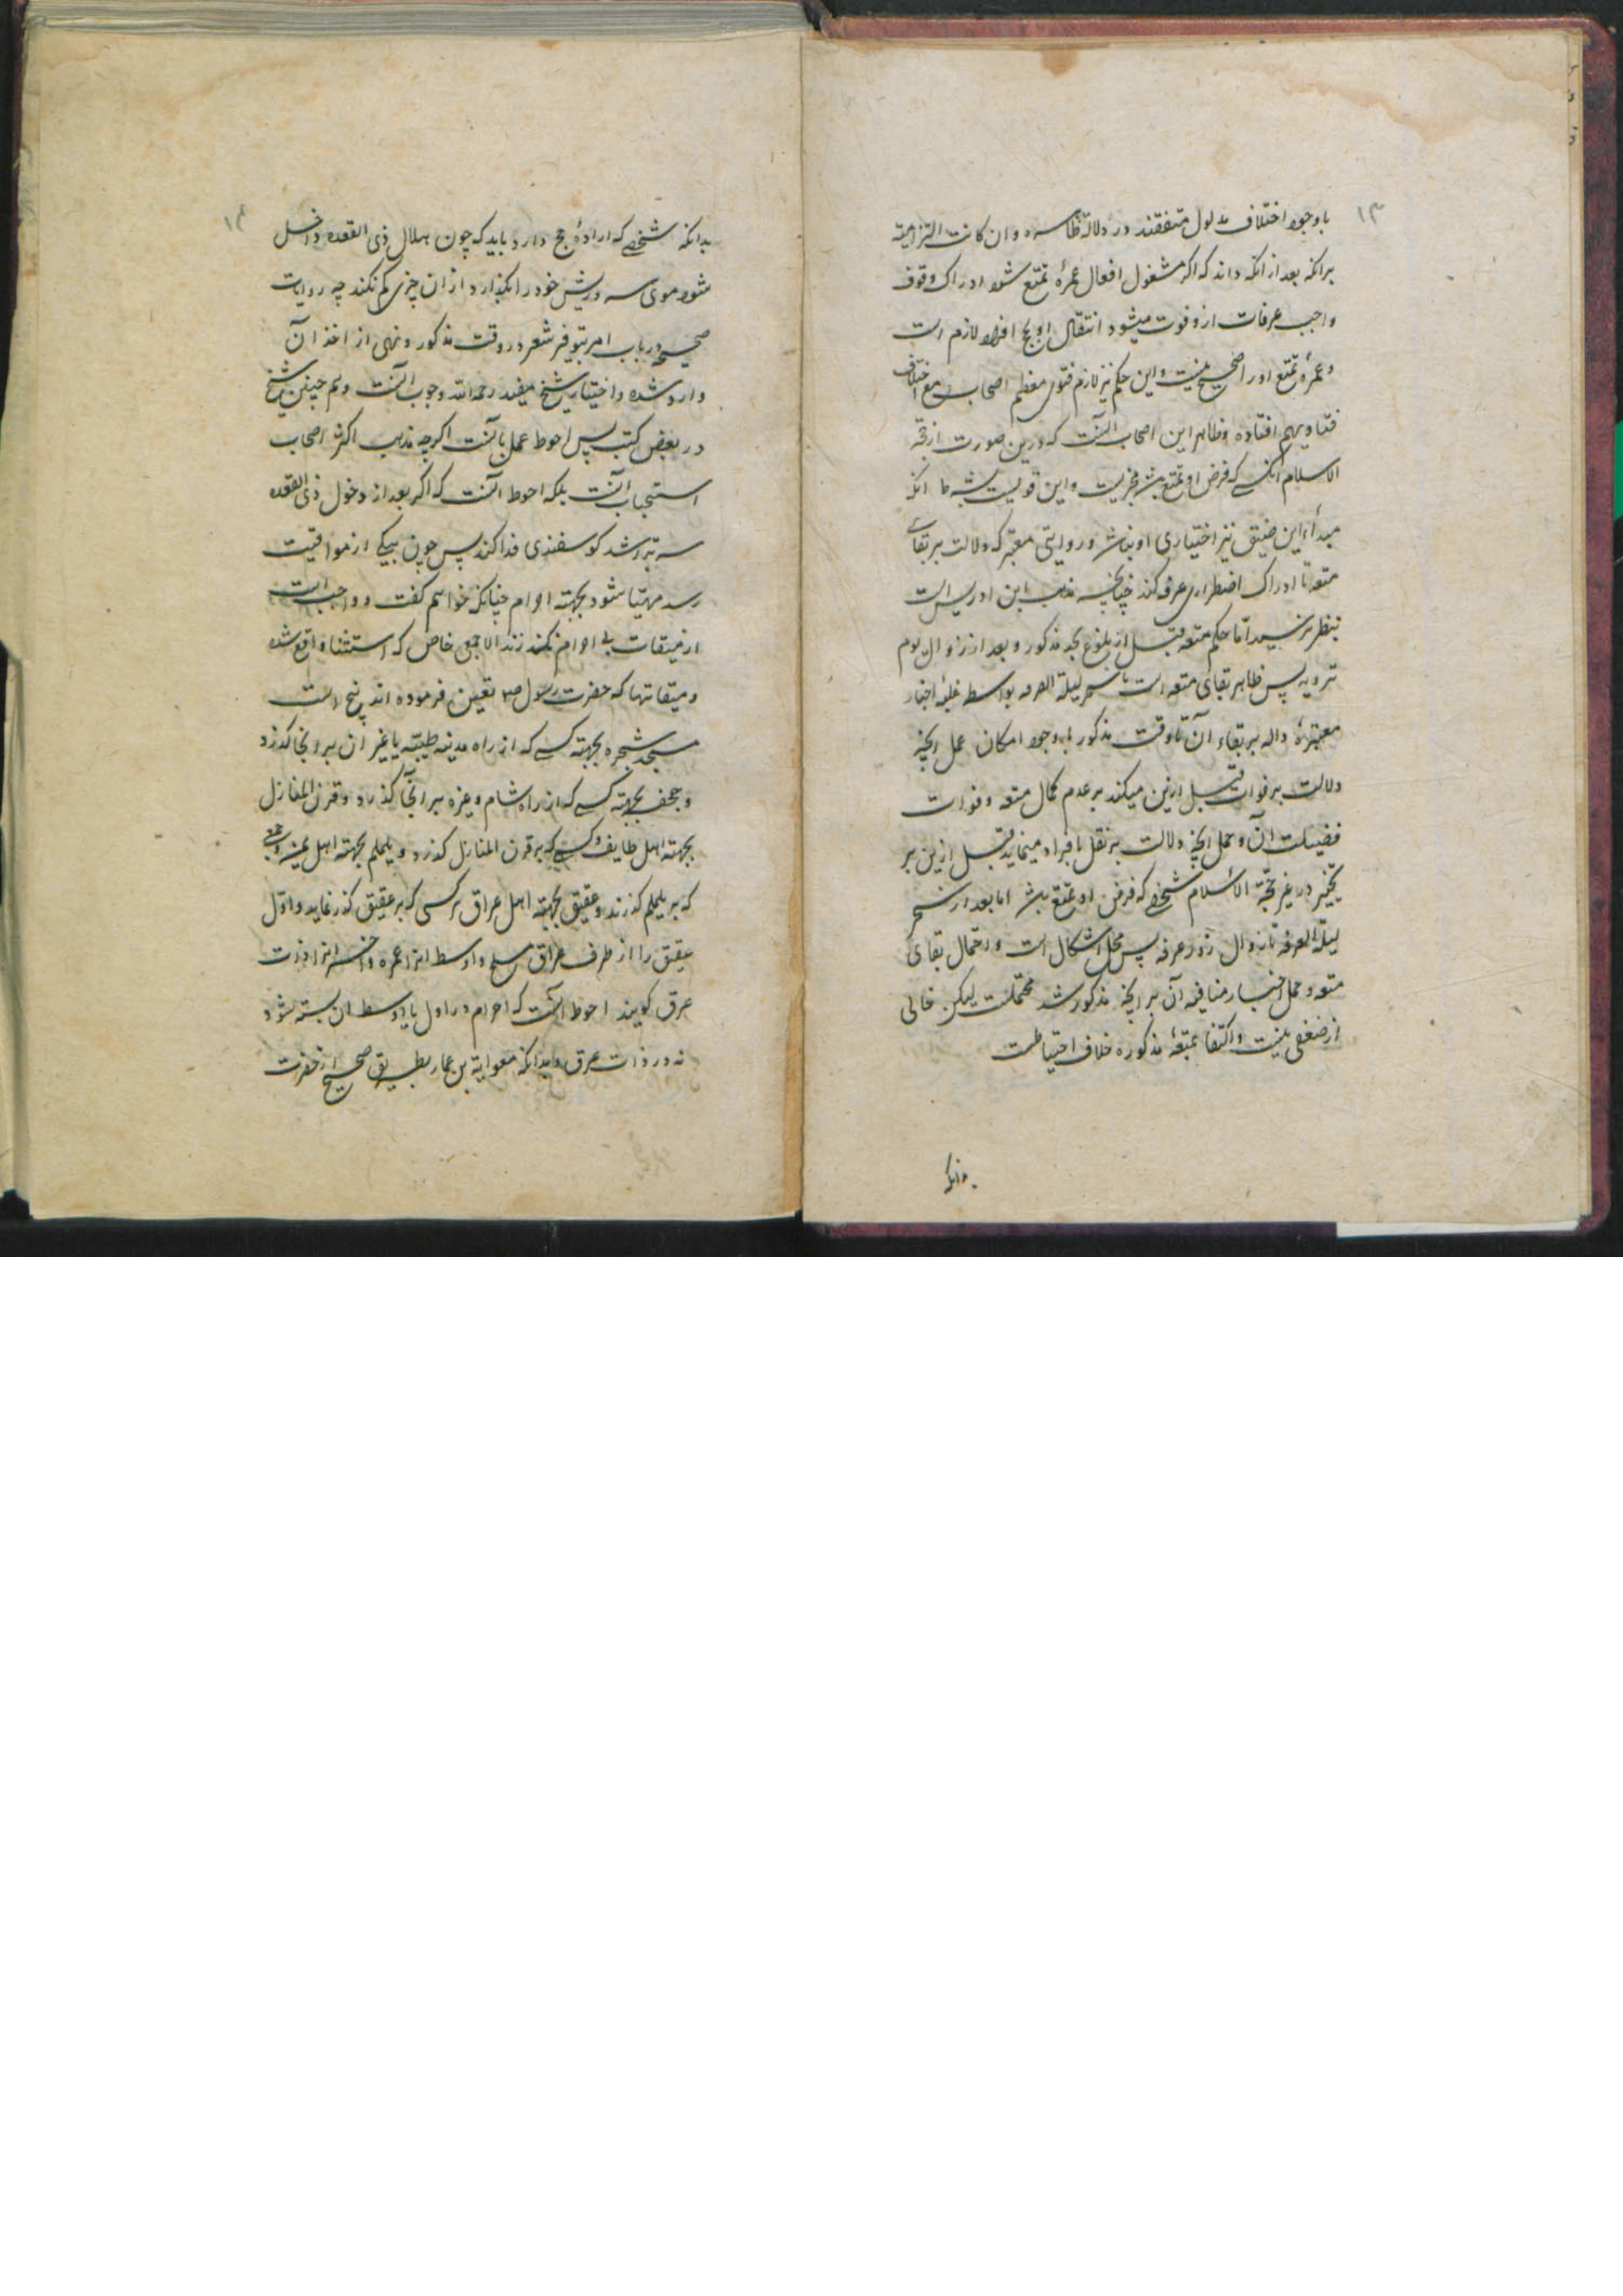 ۱۳
باوجود اختلاف مدلول متفقند در دلالة ظاهره وان كانت التزامیته
برانکه بعد از انکه داند که اکر مشغول افعال عمرهٔ تمتع شود ادراک وقوف
واجب عرفات ازو فوت میشود انتقال او بحج افراد لازم است
وعمرهٔ تمتع اورا صحیح نیست واین حکم نیز لازم فتوی معظم اصحاب مع اختلاف
فتاویهم افتاده وظاهر این اصحاب آنست که درین صورت از حجة
الاسلام آنکسی که فرض او تمتع باشد مجزیست واین قولیست
مبدأ این ضیق نیز اختیاری او نباشد و روایتی معتبر که دلالت بر بقای
متعه تا ادراک اضطراری عرفه کند چنانچه مذهب ابن ادریس است
بنظر نرسید اما حکم متعه قبل از بلوغ بحد مذکور و بعد از زوال یوم
ترویه پس ظاهر بقای متعه است تا سحر لیلة العرفه بواسطه غلبهٔ اخبار
معتبرهٔ داله بر بقاء آن تا وقت مذکور باوجود امکان حمل آنچه
دلالت بر فوات قبل ازین میکند بر عدم کمال متعه وفوات
فضیلت آن وحمل آنچه دلالت بر نقل بافراد مینماید قبل ازین بر
تخییر در غیر حجة الاسلام شخصی که فرض او تمتع باشد اما بعد از سحر
لیلة العرفه تا زوال روز عرفه پس محل اشکال است واحتمال بقای
متعه وحمل اخبار منافیه آن بر آنچه مذکور شد محتملست لیکن خالی
از ضعفی نیست واکتفا بمتعهٔ مذکوره خلاف احتیاطست
بدانکه
۱۴
بدانکه شخصی که ارادهٔ حج دارد باید که چون هلال ذی القعده داخل
شود موی سر وریش خود را بگذارد و از ان چیزی کم نکند چه روایات
صحیحه در باب امر بتوفیر شعر در وقت مذکور ونهی از اخذ آن
وارد شده واختیار شیخ مفید رحمه الله وجوب آنست وهم چنین شیخ
در بعض کتب پس احوط عمل بآنست اکرچه مذهب اکثر اصحاب
استحباب آنست بلکه احوط آنست که اکر بعد از دخول ذی القعده
سر تراشد کوسفندی فدا کند پس چون بیکی از مواقیت
رسد مهیا شود بجهته احرام چنانکه خواهم کفت و واجب است
از میقات بی احرام نکذرند الا جمعی خاص که استثنا واقع شده
ومیقاتها که حضرت رسول ص تعیین فرموده اند پنج است
مسجد شجره بجهته کسی که از راه مدینه طیبه یا غیر ان برونجا کذرد
وجحفه بجهته کسی که از راه شام وغیره بر آنجا کذرد وقرن المنازل
بجهته اهل طایف وکسی که بر قرن المنازل کذرد ویلملم بجهته اهل یمن وجمعی
که بر یلملم کذرند وعقیق بجهته اهل عراق هر کسی که بر عقیق کذر نماید واول
عقیق را از طرف عراق مسلح واوسط انرا غمره وآخر انرا ذات
عرق کویند احوط آنست که احرام در اول یا اوسط ان بسته شود
نه در ذات عرق وبدانکه معویة بن عمار بطریق صحیح از حضرت